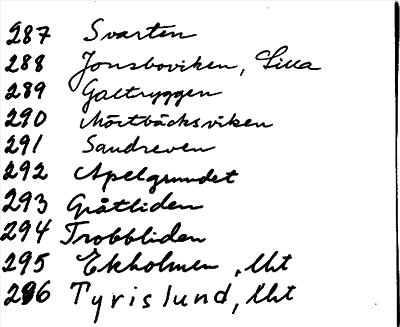 287 Svarten
288 Jonsboviken, Lilla
289 Galtryggen
290 Mörtbäcksviken
291 Sandreven
292 Apelgrundet
293 Gråtliden
294 Trobbliden
295 Ekholmen, Lht
296 Tyrislund, Lht